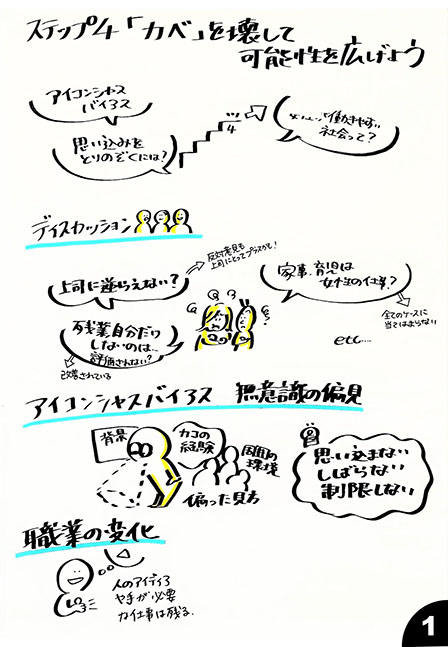 ステップ4「カベ」を壊して
可能性を広げよう
アイコンシャス
バイアス
思い込みを
とりのぞくには?
4
働きやすい
社会って?
ディスカッション
上司に逆らえない?
反対意見も
上司にとってプラスかも!
家事、育児は
女性の仕事?
全てのケースに
当てはまらない
残業、自分だけ
しないのは…
評価されない?
改善されている
etc...
アイコンシャスバイアス 無意識の偏見
背景
カコの
経験
周囲の
環境
偏った見方
思い込まない
しばらない
制限しない
職業の変化
人のアイディア
や手が必要
な仕事は残る.
1